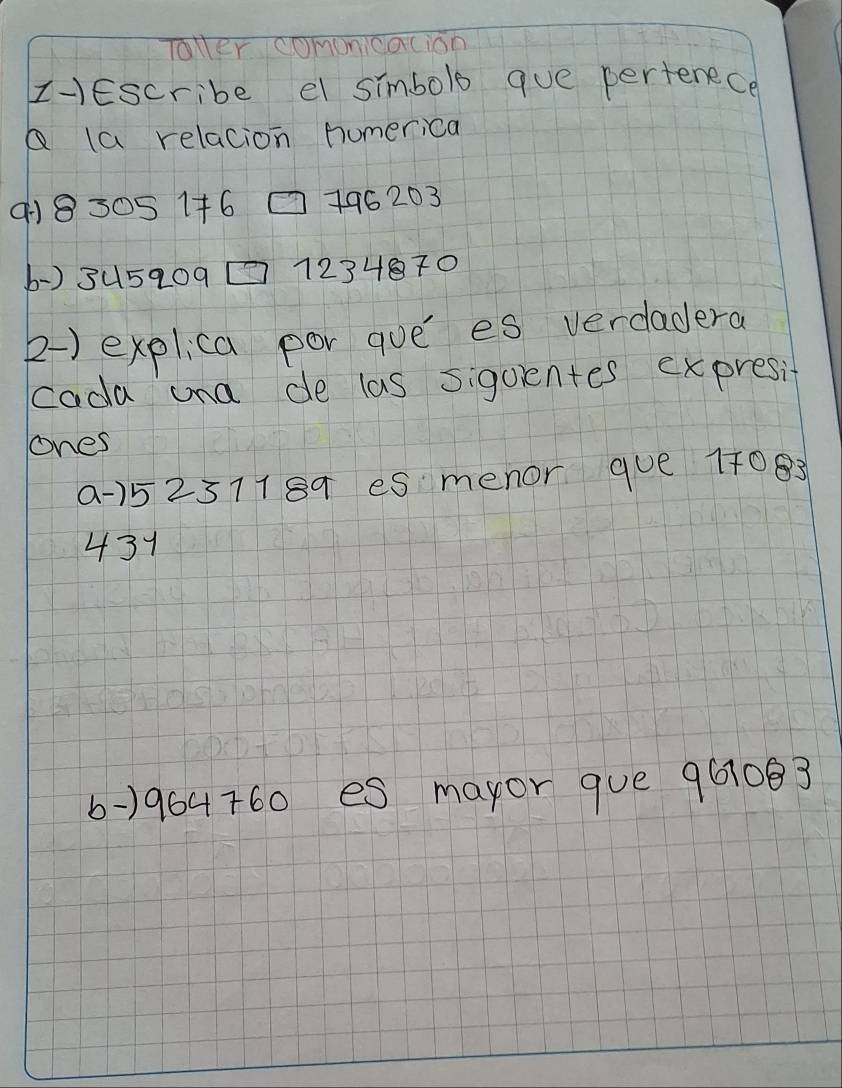 Taller comunicación
1-) Escribe el símbolo que pertenece
a la relacion numerica
a-) 8 305 176 □ 796 203
b-) 345909 □ 1234870
2-) explica por qué es verdadera
cada una de las siguientes expresi-
ones
a-) 5 231189 es menor que 17083
431
b-) 964760 es mayor que 961083